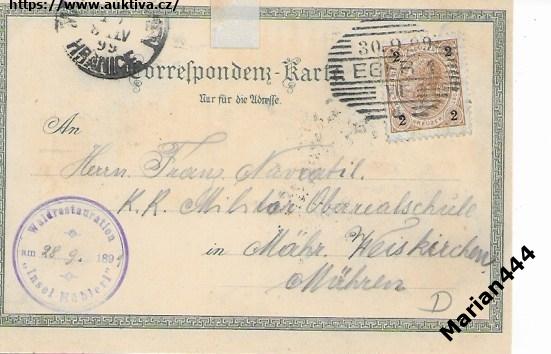 https://www.auktiva.cz/
99
HRANICE
Correspondenz-Karte
Nur für die Adresse.
30.9.99
EGER
2 2
2 2
An
Herrn Franz Navratil.
K. K. Militär Oberealschule
in Mähr. Weiskirchen
Mähren
D
Waldrestauration
am 28.9. 189
"Insel Mühlerl"
Marian444